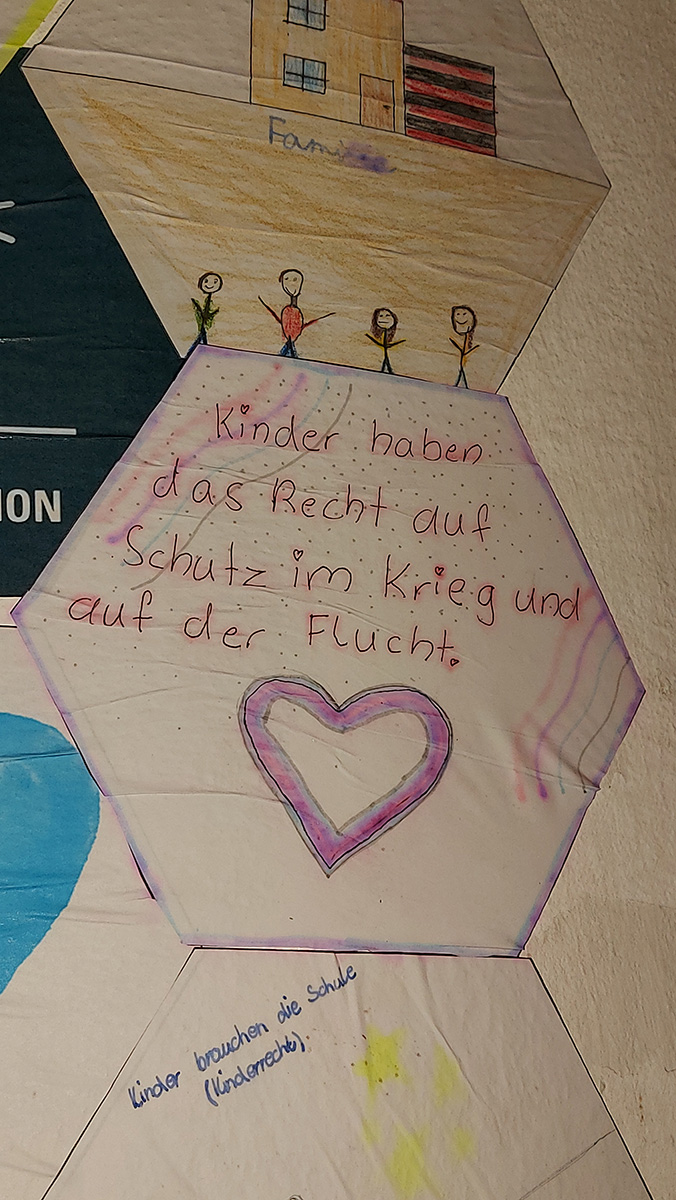 ION
Kinder haben
das Recht auf
Schutz im Krieg und
auf der Flucht.
Kinder brauchen die Schule
(Kinderrecht)